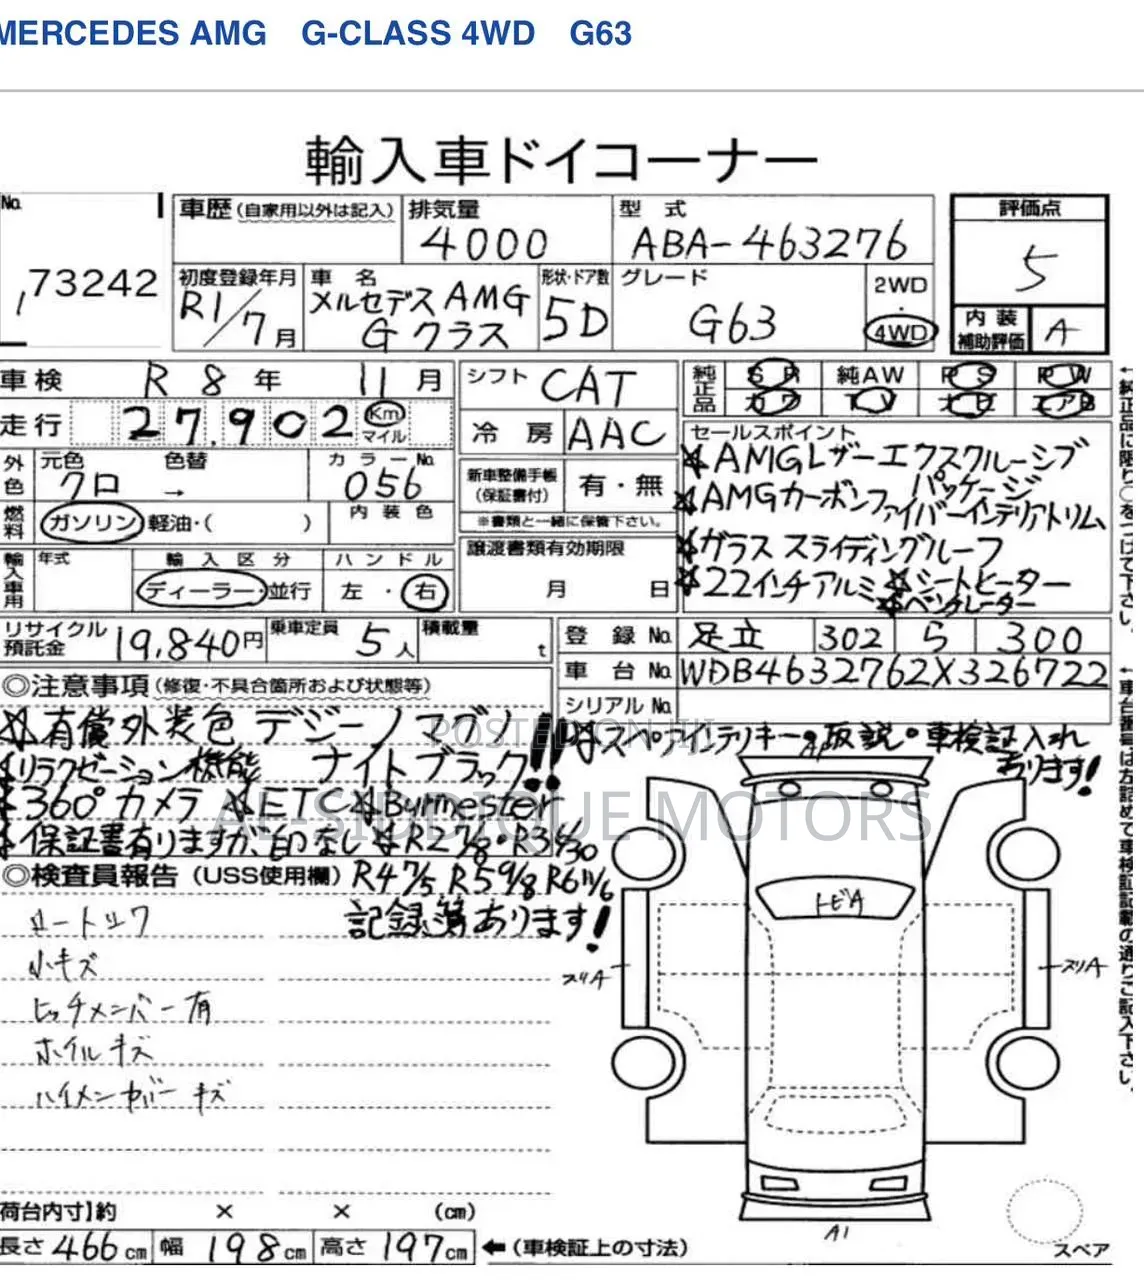 MERCEDES AMG G-CLASS 4WD G63
輸入車ドイコーナー
No.
173242
車歴 (自家用以外は記入)
排気量
4000
型式
ABA-463276
評価点
5
初度登録年月
R1/7月
車名
メルセデス AMG
G クラス
形状・ドア数
5D
グレード
G63
2WD
・
4WD
内装
補助評価
A
車検 R 8 年 11 月
シフト CAT
純正品
SR 純AW PS PW
カワ TV ナビ エアB
走行 27,902 Km
マイル
冷房 AAC
セールスポイント
☆AMGレザーエクスクルーシブ
パッケージ
☆AMGカーボンファイバーインテリアトリム
☆ガラス スライディングルーフ
☆22インチアルミ ☆シートヒーター
☆ベンチレーター
外色 元色 色替
クロ →
カラーNo.
056
新車整備手帳
(保証書付)
有・無
※書類と一緒に保管下さい。
燃料 ガソリン 軽油・( )
内装色
譲渡書類有効期限
月 日
輸入車用 年式
輸入区分
ディーラー・並行
ハンドル
左・右
リサイクル
預託金
19,840円
乗車定員
5人
積載量
t
登録No. 足立 302 ら 300
車台No. WDB4632762X326722
シリアルNo.
◎注意事項 (修復・不具合箇所および状態等)
☆有償外装色 デジーノマグノ
☆リラクゼーション機能 ナイトブラック!!
☆スペア、インテリキー・取説・車検証入れ
あります!
☆360°カメラ ☆ETC ☆Burmester
☆保証書有りますが、印なし ☆R2 7/8・R3 6/30
◎検査員報告 (USS使用欄) R4 7/5 R5 9/8 R6 11/6
記録簿あります!
ロートリク
小キズ
ヒッチメンバー有
ホイルキズ
ハイメンカバーキズ
トビA
スリA
スリA
A1
荷台内寸】約 × × (cm)
長さ 466 cm 幅 198 cm 高さ 197 cm ←(車検証上の寸法)
スペア
←純正品に限り○をつけて下さい。
←車台番号は左詰めで車検証記載の通りご記入下さい。
POSTED ON JIJI
AL-SIDDIQUE MOTORS